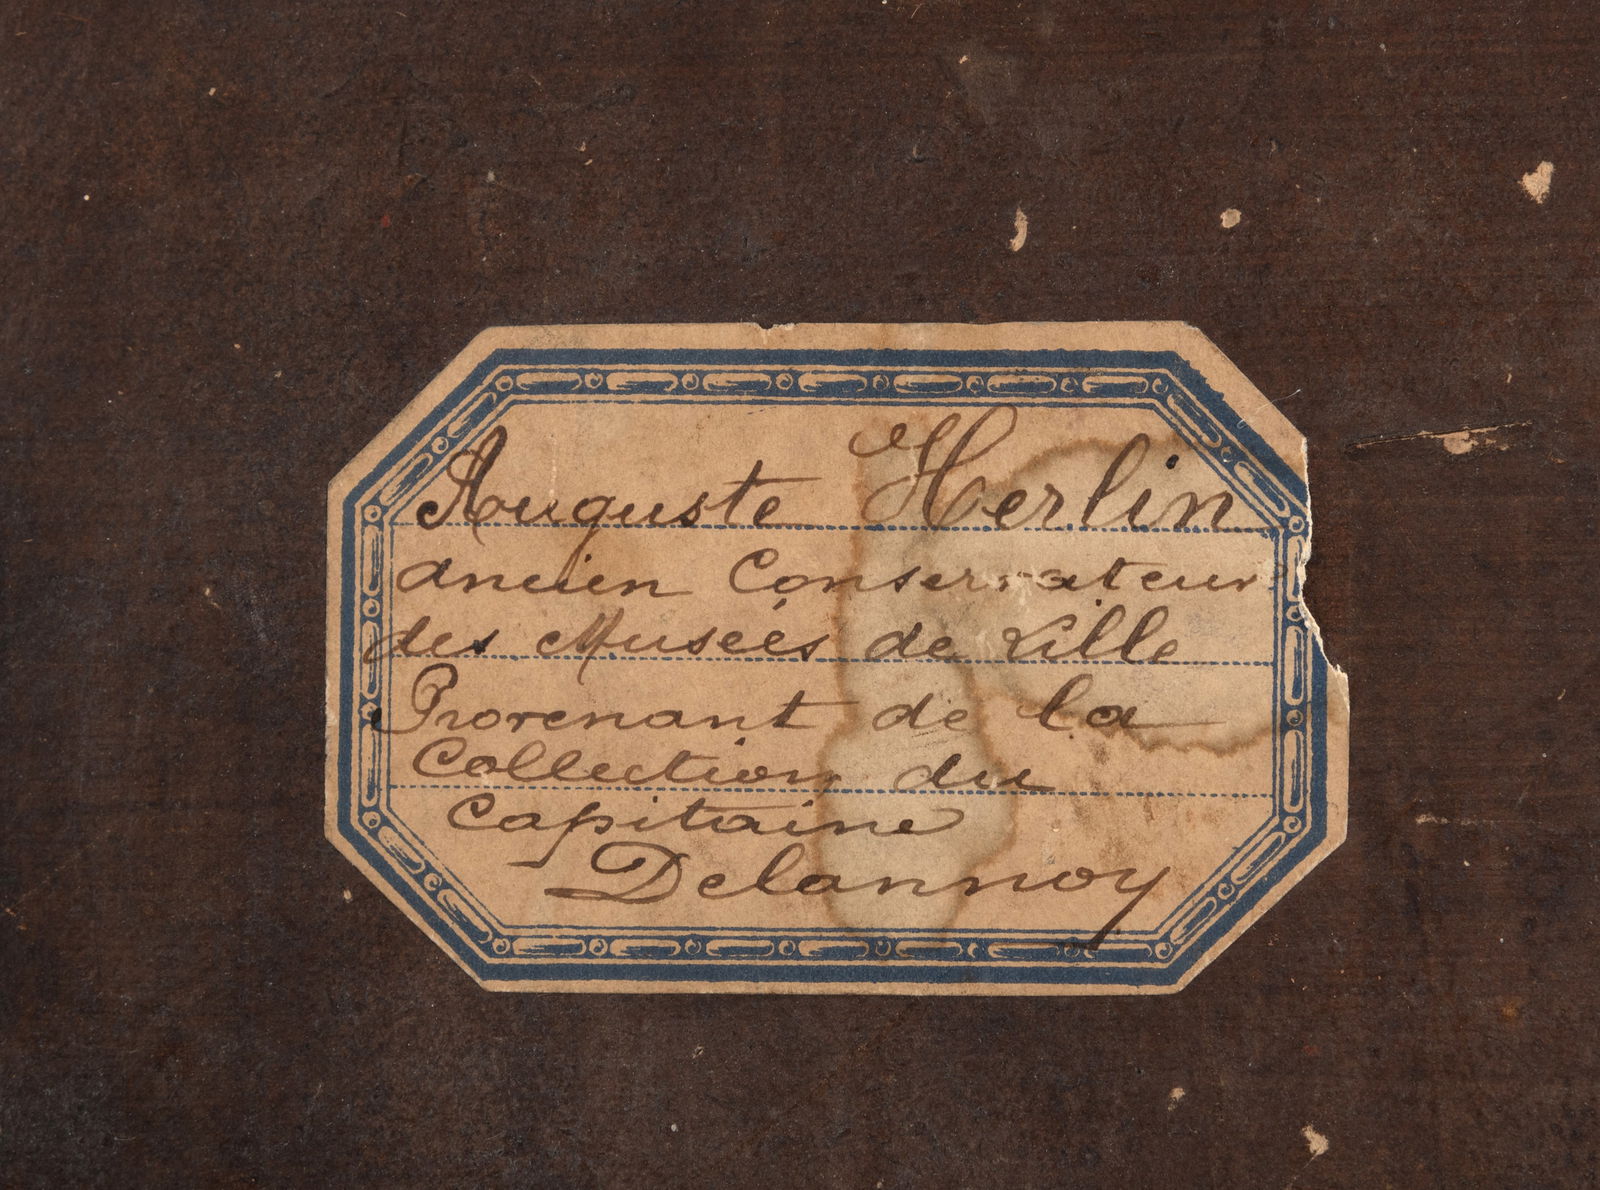 Auguste Herlin
ancien Conservateur
des Musées de Lille
Provenant de la
Collection du
capitaine
Delannoy